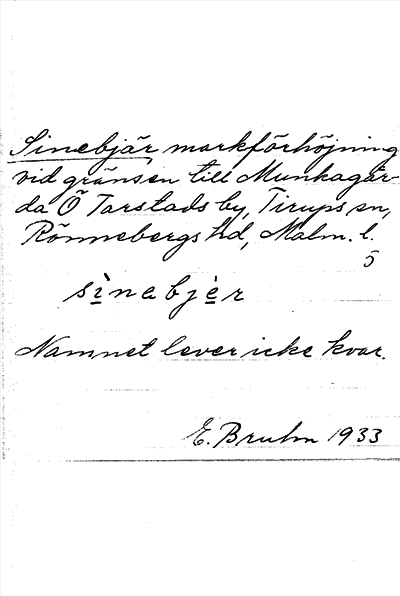 Sinebjär, markförhöjning
vid gränsen till Munkagår-
da Ö Tarstads by, Tirups sn,
Rönnebergs hd, Malm. l.
5
sìnebjèr
Namnet lever icke kvar.
E. Bruhn 1933